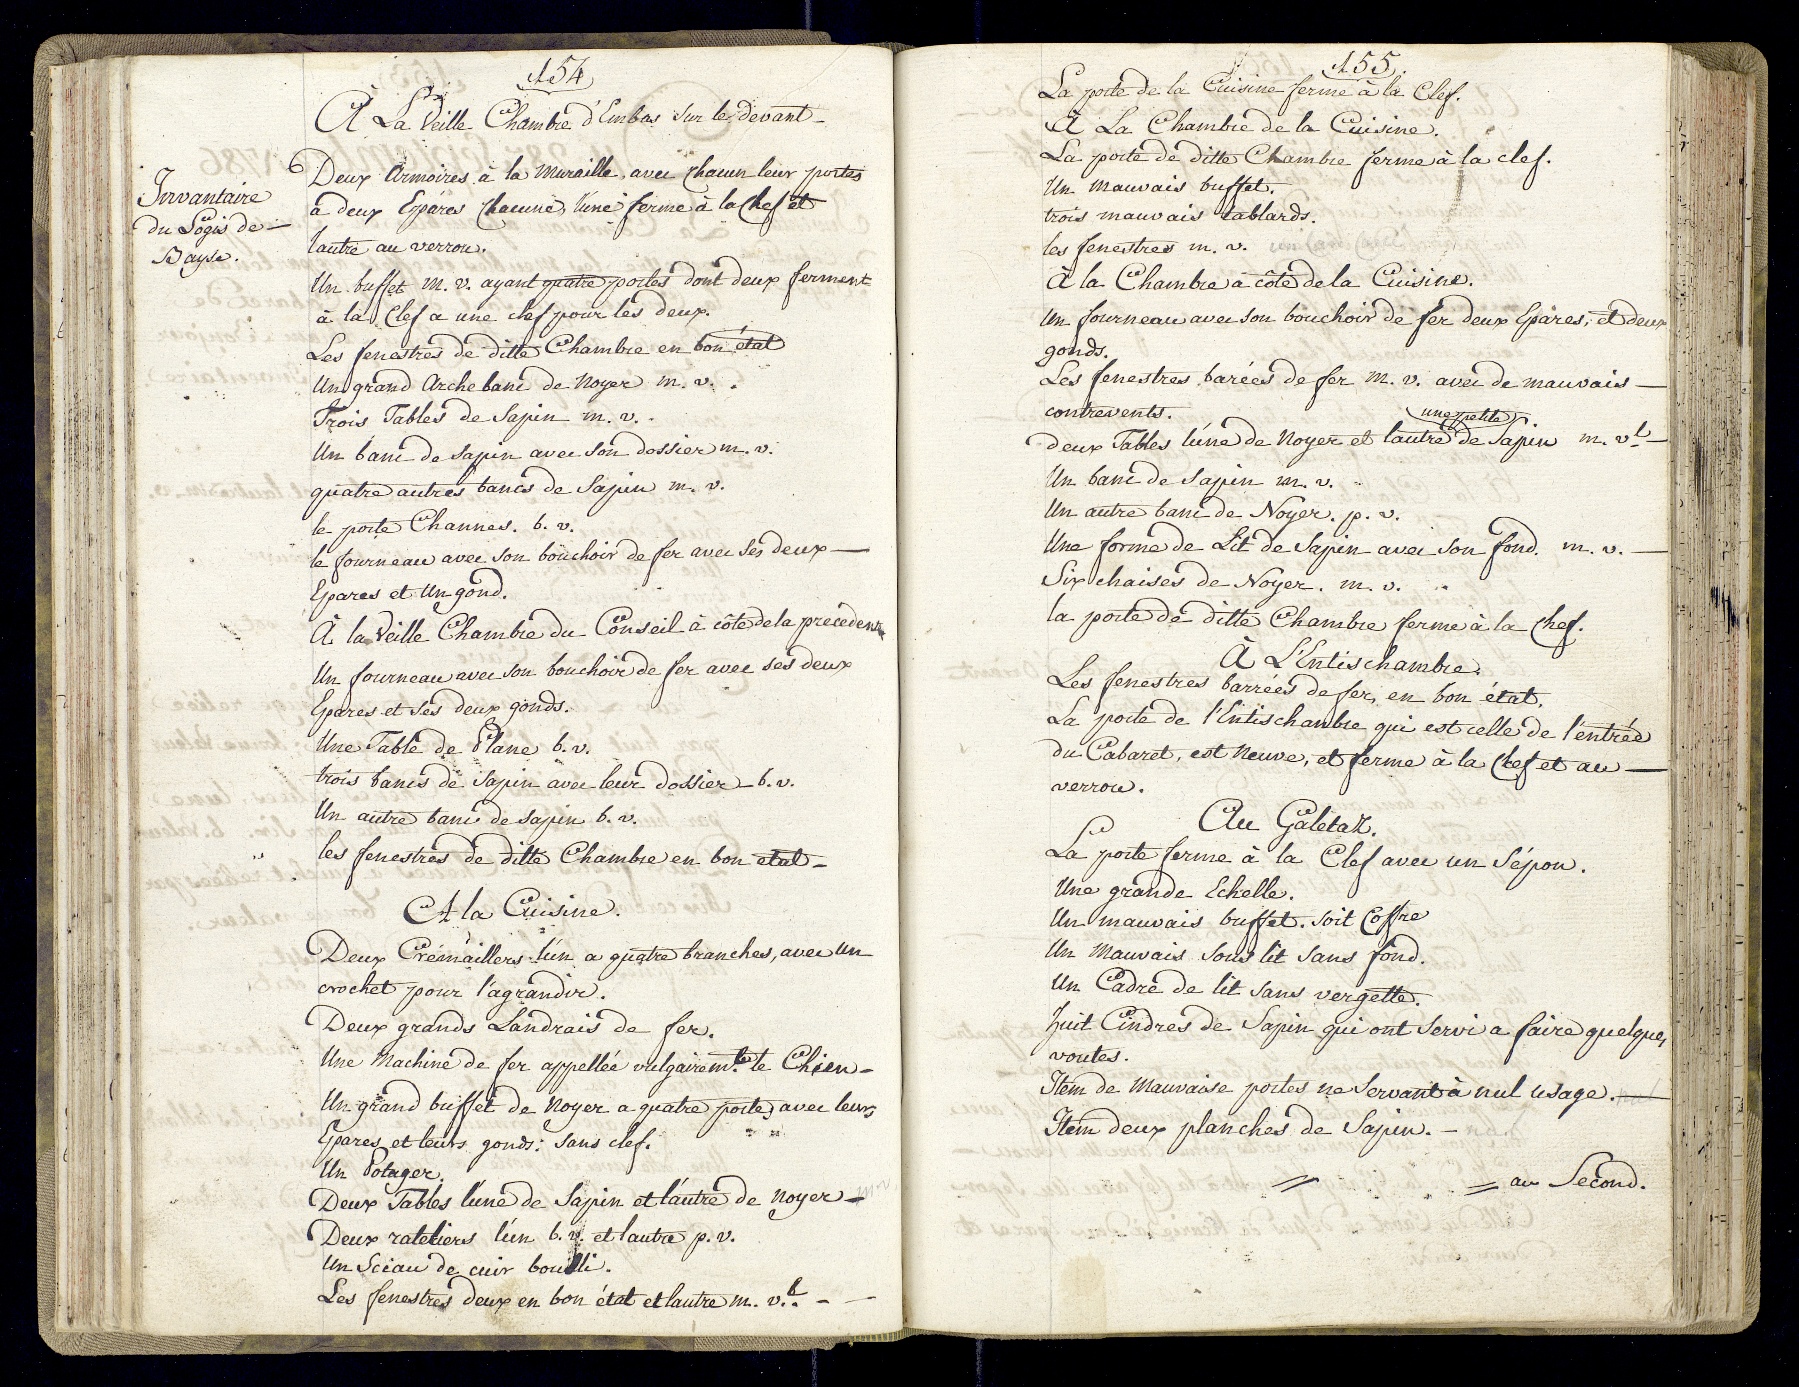 154
À La Veille Chambre d'Embas sur le devant
Invantaire
du Logis de
Bayse.
Deux Armoires à la muraille, avec chacun leur portes
a deux Epares chacune, l'une ferme à la Clef et
l'autre au verrou.
Un buffet m. v. ayant quatre portes dont deux ferment
à la Clef a une clef pour les deux.
Les fenestres de ditte Chambre en bon état
Un grand Archebanc de Noyer m. v.
Trois Tables de Sapin m. v.
Un banc de sapin avec son dossier m. v.
quatre autres bancs de Sapin m. v.
le porte Channes. b. v.
le fourneau avec son bouchoir de fer avec ses deux
Epares et Un gond.
À la Veille Chambre du Conseil à côté de la précédente
Un fourneau avec son bouchoir de fer avec ses deux
Epares et ses deux gonds.
Une Table de Plane b. v.
trois bancs de Sapin avec leur dossier b. v.
Un autre banc de sapin b. v.
les fenestres de ditte Chambre en bon etat
A la Cuisine.
Deux Crémaillers l'un a quatre branches, avec Un
crochet pour l'agrandir.
Deux grands Landrais de fer.
Une Machine de fer appellée vulgairem.t le Chien
Un grand buffet de Noyer a quatre portes avec leurs
Epares et leurs gonds: sans clef.
Un Potager.
Deux Tables l'une de Sapin et l'autre de Noyer m v
Deux rateliers l'un b. v. et l'autre p. v.
Un Sciau de cuir bouilli.
Les fenestres deux en bon état et l'autre m. v.l
155
La porte de la Cuisine ferme à la Clef.
À La Chambre de la Cuisine.
La porte de ditte Chambre ferme à la clef.
Un mauvais buffet.
trois mauvais tablards.
les fenestres m. v.
À la Chambre à côté de la Cuisine.
Un fourneau avec son bouchoir de fer deux Epares, et deux
gonds.
Les fenestres barées de fer m. v. avec de mauvais
contrevents.
une petite
deux Tables l'une de Noyer et l'autre de Sapin m. v.l
Un banc de Sapin m. v.
Un autre banc de Noyer. p. v.
Une forme de Lit de Sapin avec son fond. m. v.
Six chaises de Noyer. m. v.
la porte de ditte Chambre ferme à la Clef.
À L'Entischambre.
Les fenestres barrées de fer, en bon état.
La porte de l'Entischambre qui est celle de l'entrée
du Cabaret, est Neuve, et ferme à la Clef et au
verrou.
Au Galetaz.
La porte ferme à la Clef avec un Sépon.
Une grande Echelle.
Un mauvais buffet. soit Coffre
Un Mauvais sous lit sans fond.
Un Cadre de lit sans vergette.
huit Cindres de Sapin qui ont servi a faire quelques
voutes.
Item de Mauvaise portes ne Servant à nul usage.
Item deux planches de Sapin.
au Second.